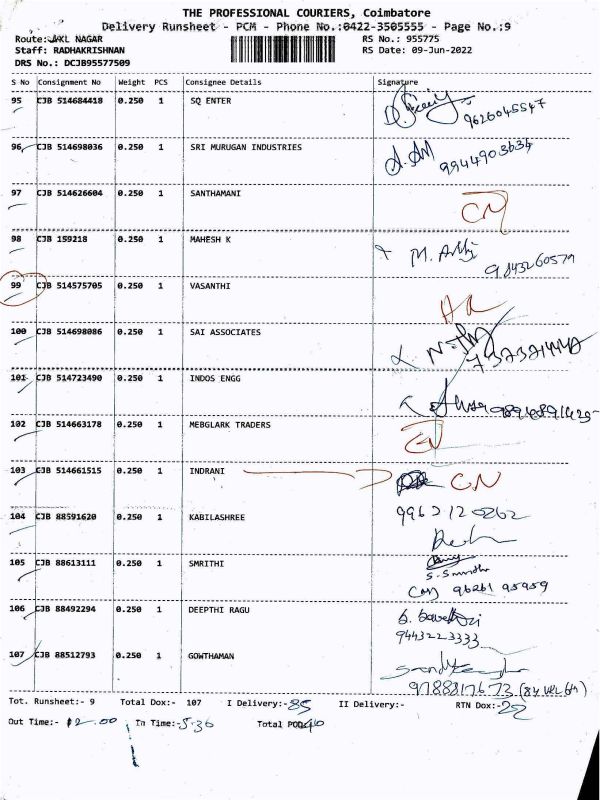 THE PROFESSIONAL COURIERS, Coimbatore
Delivery Runsheet - PCM - Phone No.:0422-3505555 - Page No.:9
Route: NAGAR
RS No.: 955775
Staff: RADHAKRISHNAN
RS Date: 09-Jun-2022
DRS No.: DCJB95577509
S No Consignment No Weight PCS Consignee Details Signature
95 CJB 514684418 0.250 1 SQ ENTER 9626045547
96 CJB 514698036 0.250 1 SRI MURUGAN INDUSTRIES 9944903634
97 CJB 514626604 0.250 1 SANTHAMANI
98 CJB 159218 0.250 1 MAHESH K 9843260579
99 CJB 514575705 0.250 1 VASANTHI
100 CJB 514698086 0.250 1 SAI ASSOCIATES
101 CJB 514723490 0.250 1 INDOS ENGG
102 CJB 514663178 0.250 1 MEBGLARK TRADERS
103 CJB 514661515 0.250 1 INDRANI CN
104 CJB 88591620 0.250 1 KABILASHREE 9962120262
105 CJB 88613111 0.250 1 SMRITHI
106 CJB 88492294 0.250 1 DEEPTHI RAGU 9443223333
107 CJB 88512793 0.250 1 GOWTHAMAN
Tot. Runsheet:- 9 Total Dox:- 107 I Delivery:-85 II Delivery:- RTN Dox:-22
Out Time:- 12.00 In Time:-5.36 Total POD:-